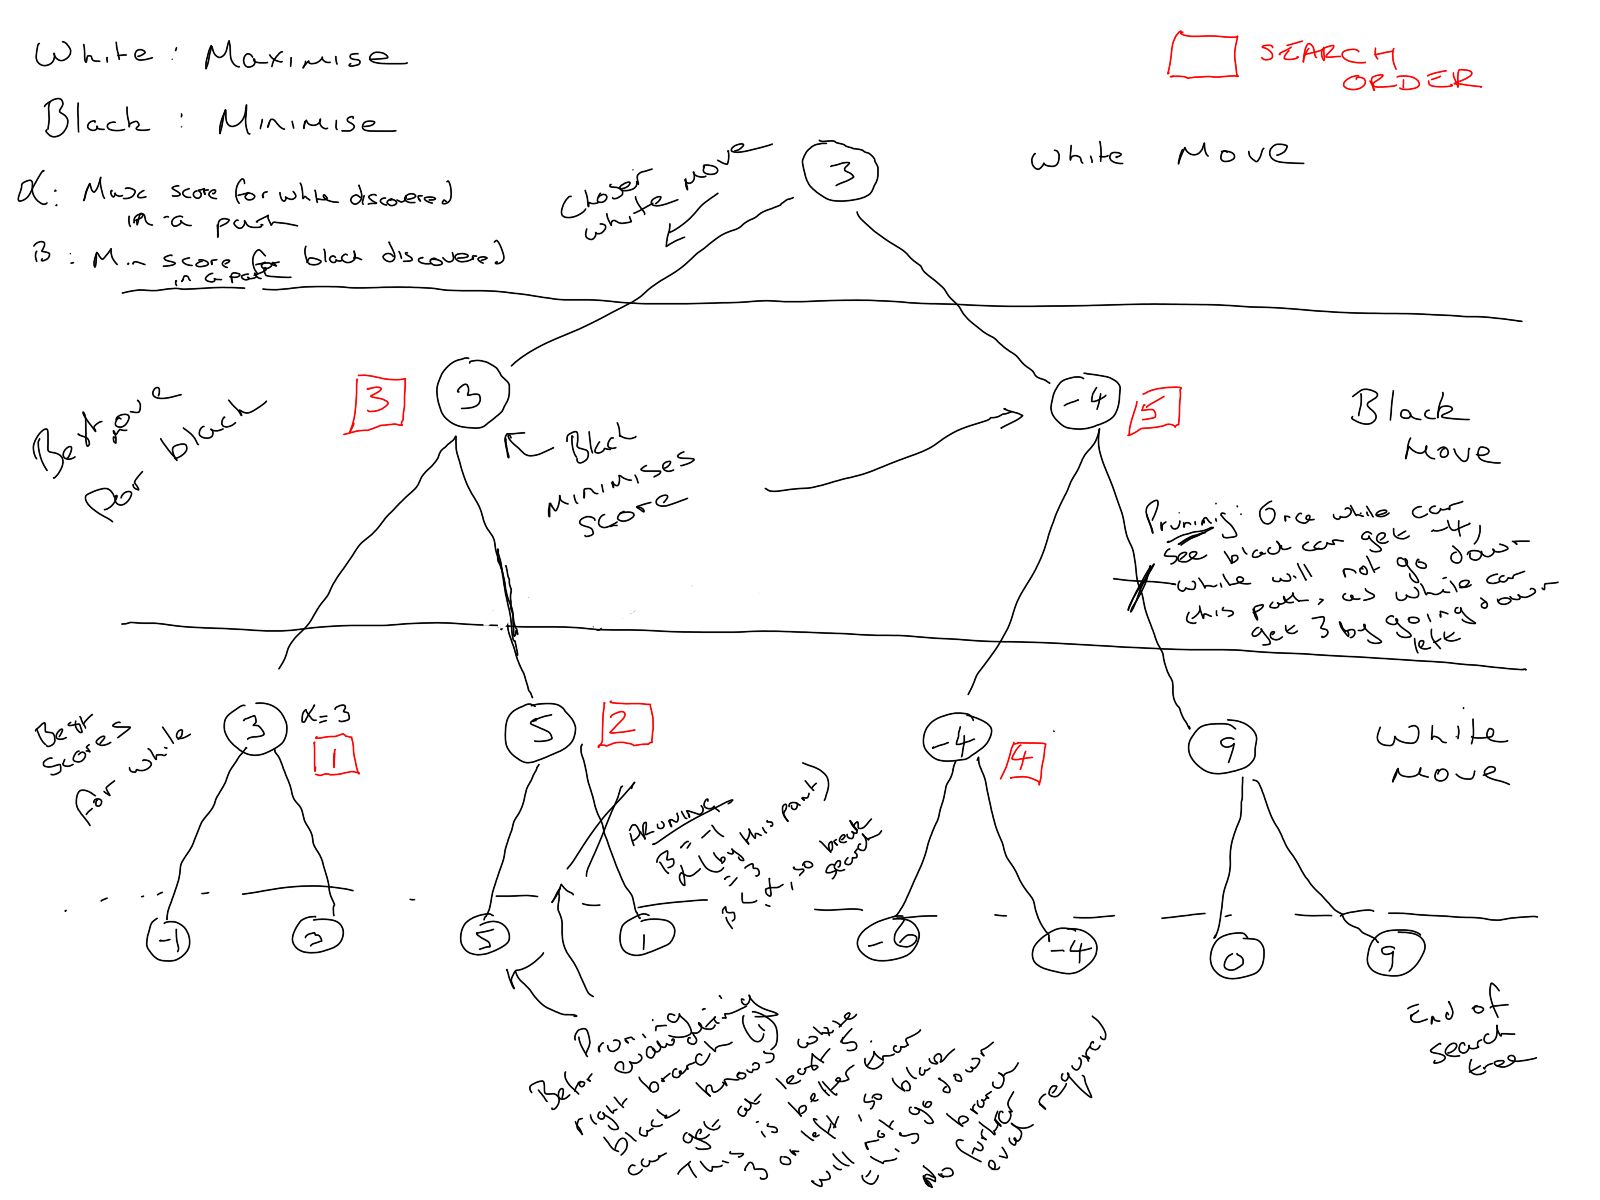 White : Maximise
Black : Minimise
α : Max score for white discovered
in a path
B : Min score for black discovered
in a path
SEARCH
ORDER
White Move
3
Chosen
white move
Best move
for black
3
3
Black
minimises
score
-4
5
Black
Move
Pruning: Once white can
see black can get -4,
white will not go down
this path, as white can
get 3 by going down
left
Best
scores
for white
3
α=3
1
5
2
-4
4
9
White
Move
PRUNING
B = -1
α (by this point)
= 3
B < α, so break
search
-1
3
5
1
-6
-4
0
9
Pruning
Befor evaluating
right branch (1)
black knows white
can get at least 5.
This is better than
3 on left, so black
will not go down
this branch
No further
eval required
End of
search
tree